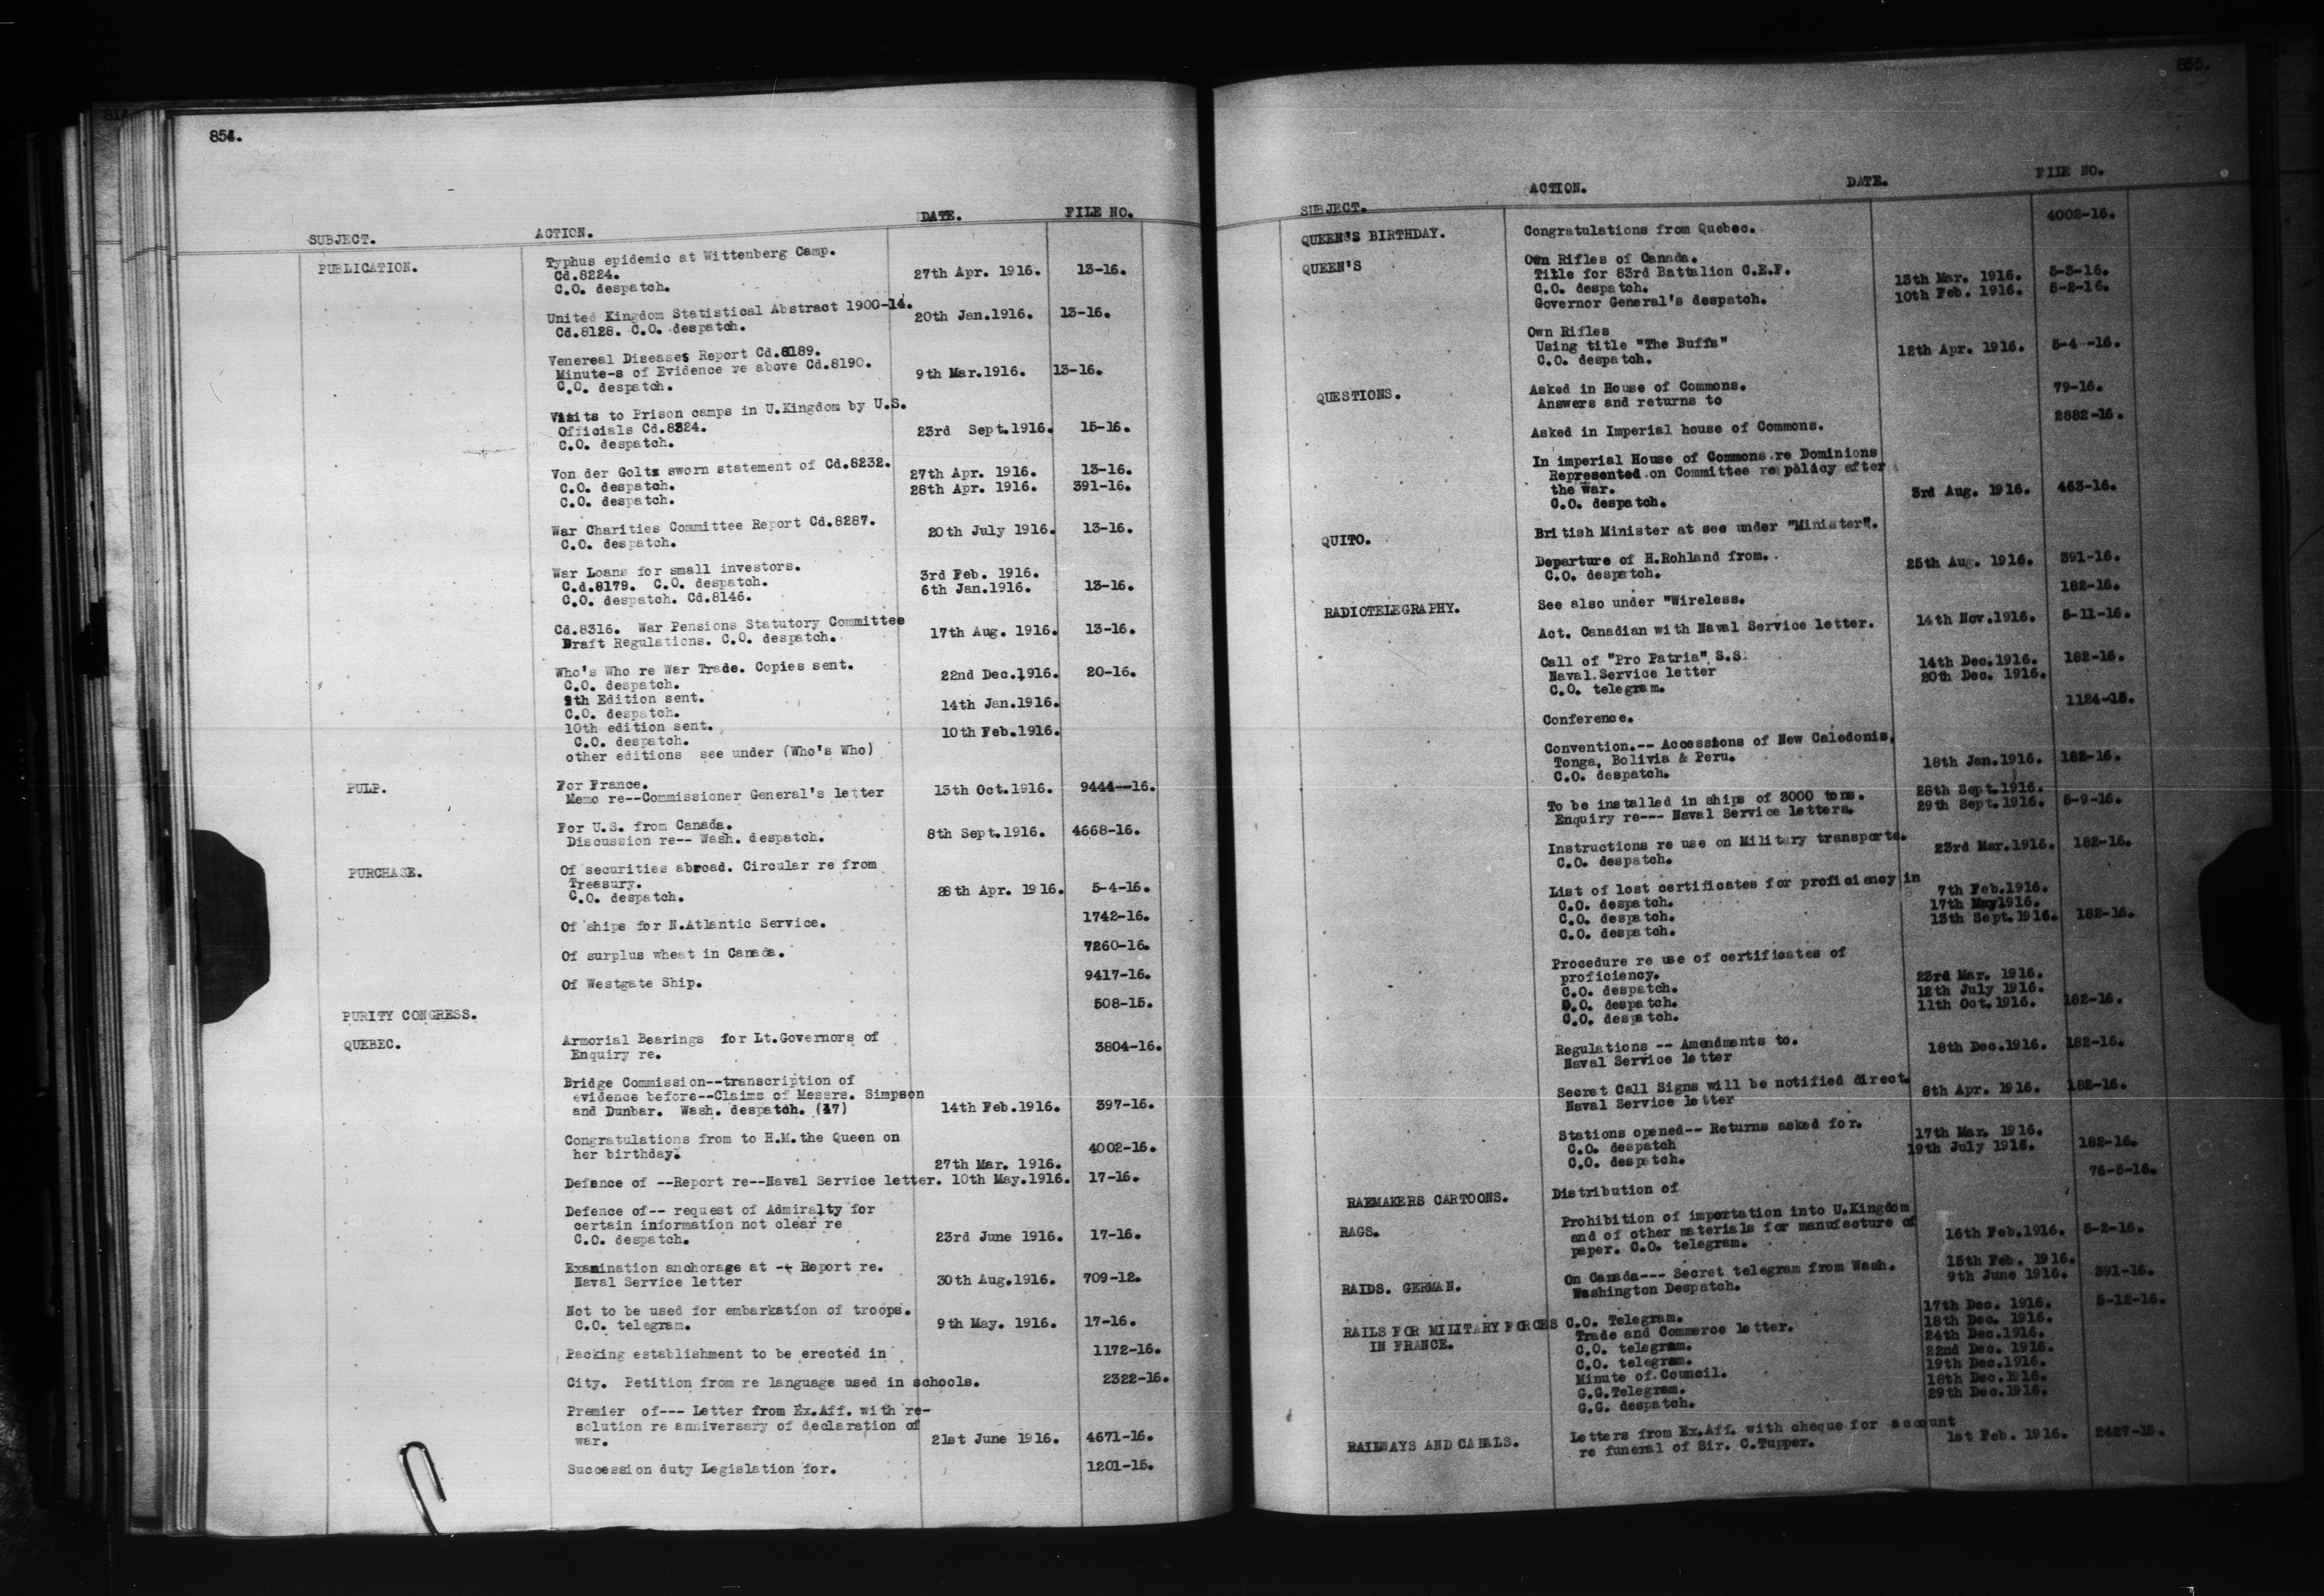 814
854.
SUBJECT. ACTION. DATE. FILE NO.
PUBLICATION. Typhus epidemic at Wittenberg Camp.
Cd.8224. 27th Apr. 1916. 13-16.
C.O. despatch.
United Kingdom Statistical Abstract 1900-14. 20th Jan.1916. 13-16.
Cd.8128. C.O. despatch.
Venereal Diseases Report Cd.8189.
Minute-s of Evidence re above Cd.8190. 9th Mar.1916. 13-16.
C.O. despatch.
Visits to Prison camps in U.Kingdom by U.S.
Officials Cd.8324. 23rd Sept.1916. 15-16.
C.O. despatch.
Von der Goltz sworn statement of Cd.8232.
C.O. despatch. 27th Apr. 1916. 13-16.
C.O. despatch. 28th Apr. 1916. 391-16.
War Charities Committee Report Cd.8287.
C.O. despatch. 20th July 1916. 13-16.
War Loans for small investors.
C.d.8179. C.O. despatch. 3rd Feb. 1916.
C.O. despatch. Cd.8146. 6th Jan.1916. 13-16.
Cd.8316. War Pensions Statutory Committee
Draft Regulations. C.O. despatch. 17th Aug. 1916. 13-16.
Who's Who re War Trade. Copies sent.
C.O. despatch. 22nd Dec.1916. 20-16.
9th Edition sent.
C.O. despatch. 14th Jan.1916.
10th edition sent.
C.O. despatch. 10th Feb.1916.
other editions see under (Who's Who)
PULP. For France.
Memo re--Commissioner General's letter 13th Oct.1916. 9444--16.
For U.S. from Canada.
Discussion re-- Wash. despatch. 8th Sept.1916. 4668-16.
PURCHASE. Of securities abroad. Circular re from
Treasury.
C.O. despatch. 28th Apr. 1916. 5-4-16.
Of ships for N.Atlantic Service. 1742-16.
Of surplus wheat in Canada. 7260-16.
Of Westgate Ship. 9417-16.
PURITY CONGRESS. 508-15.
QUEBEC. Armorial Bearings for Lt.Governors of
Enquiry re. 3804-16.
Bridge Commission--transcription of
evidence before--Claims of Messrs. Simpson
and Dunbar. Wash. despatch. (17) 14th Feb.1916. 397-16.
Congratulations from to H.M.the Queen on
her birthday. 4002-16.
27th Mar. 1916.
Defence of --Report re--Naval Service letter. 10th May.1916. 17-16.
Defence of-- request of Admiralty for
certain information not clear re
C.O. despatch. 23rd June 1916. 17-16.
Examination anchorage at -- Report re.
Naval Service letter 30th Aug.1916. 709-12.
Not to be used for embarkation of troops.
C.O. telegram. 9th May. 1916. 17-16.
Packing establishment to be erected in 1172-16.
City. Petition from re language used in schools. 2322-16.
Premier of--- Letter from Ex.Aff. with re-
solution re anniversary of declaration of
war. 21st June 1916. 4671-16.
Succession duty Legislation for. 1201-15.
855.
SUBJECT. ACTION. DATE. FILE NO.
QUEEN'S BIRTHDAY. Congratulations from Quebec. 4002-16.
QUEEN'S Own Rifles of Canada.
Title for 83rd Battalion C.E.F.
C.O. despatch. 13th Mar. 1916. 5-3-16.
Governor General's despatch. 10th Feb. 1916. 5-2-16.
Own Rifles
Using title "The Buffs"
C.O. despatch. 12th Apr. 1916. 5-4--16.
QUESTIONS. Asked in House of Commons.
Answers and returns to 79-16.
Asked in Imperial house of Commons. 2882-16.
In imperial House of Commons re Dominions
Represented on Committee re policy after
the War.
C.O. despatch. 3rd Aug. 1916. 463-16.
QUITO. British Minister at see under "Minister".
Departure of H.Rohland from.
C.O. despatch. 25th Aug. 1916. 391-16.
RADIOTELEGRAPHY. See also under "Wireless. 182-16.
Act. Canadian with Naval Service letter. 14th Nov.1916. 5-11-16.
Call of "Pro Patria" S.S.
Naval Service letter 14th Dec.1916. 182-16.
C.O. telegram. 20th Dec. 1916.
Conference. 1124-15.
Convention.-- Accessions of New Caledonia,
Tonga, Bolivia & Peru.
C.O. despatch. 18th Jan.1916. 182-16.
To be installed in ships of 3000 tons. 28th Sept.1916.
Enquiry re--- Naval Service letters. 29th Sept.1916. 5-9-16.
Instructions re use on Military transports.
C.O. despatch. 23rd Mar.1916. 182-16.
List of lost certificates for proficiency in
C.O. despatch. 7th Feb.1916.
C.O. despatch. 17th May1916.
C.O. despatch. 13th Sept.1916. 182-16.
Procedure re use of certificates of
proficiency.
C.O. despatch. 23rd Mar. 1916.
C.O. despatch. 12th July 1916.
C.O. despatch. 11th Oct.1916. 182-16.
Regulations -- Amendments to.
Naval Service letter 18th Dec.1916. 182-16.
Secret Call Signs will be notified direct.
Naval Service letter 8th Apr. 1916. 182-16.
Stations opened-- Returns asked for.
C.O. despatch 17th Mar. 1916.
C.O. despatch. 19th July 1916. 182-16.
RAEMAKERS CARTOONS. Distribution of 76-5-16.
RAGS. Prohibition of importation into U.Kingdom
and of other materials for manufacture of
paper. C.O. telegram. 16th Feb.1916. 5-2-16.
RAIDS. GERMAN. On Canada--- Secret telegram from Wash. 15th Feb. 1916.
Washington Despatch. 9th June 1916. 391-16.
RAILS FOR MILITARY FORCES C.O. Telegram. 17th Dec. 1916. 5-12-16.
IN FRANCE. Trade and Commerce letter. 18th Dec. 1916.
C.O. telegram. 24th Dec.1916.
C.O. telegram. 22nd Dec. 1916.
Minute of Council. 19th Dec.1916.
G.G.Telegram. 18th Dec.1916.
G.G. despatch. 29th Dec.1916.
RAILWAYS AND CANALS. Letters from Ex.Aff. with cheque for account
re funeral of Sir. C.Tupper. 1st Feb. 1916. 2427-15.